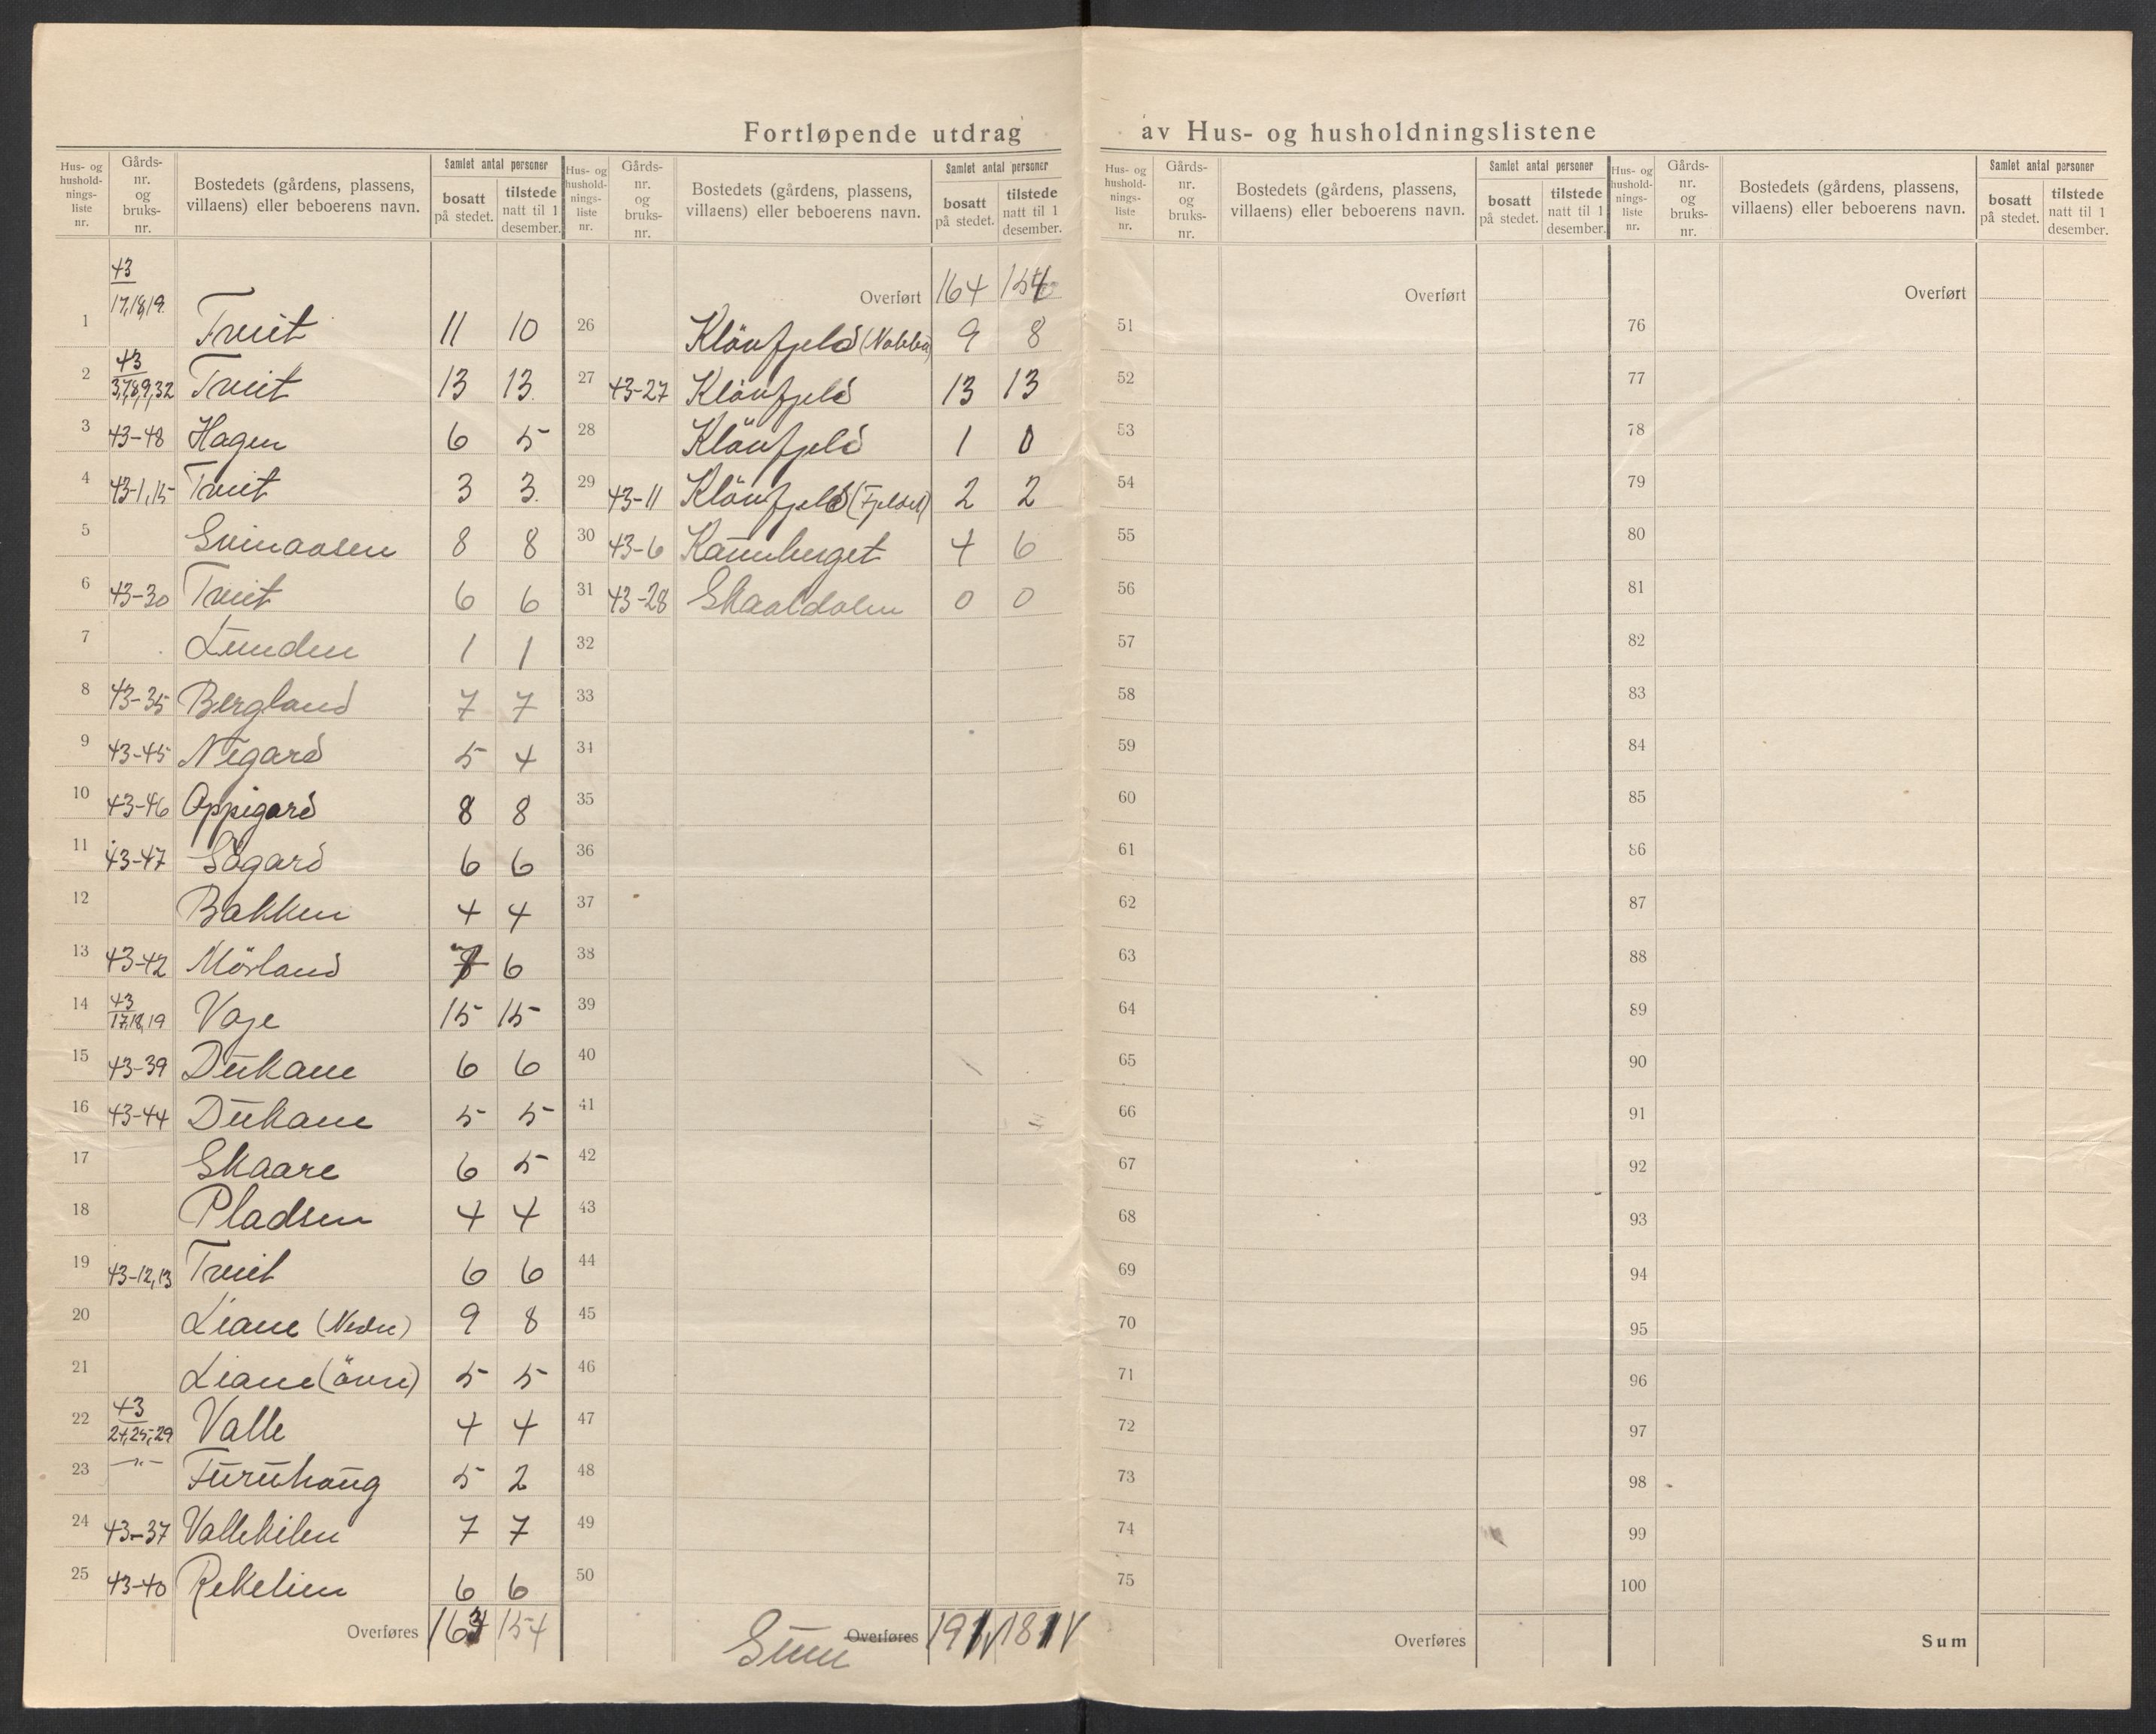 Fortløpende utdrag av Hus- og husholdningslistene
Hus- og hushold-nings-liste nr. Gårds-nr. og bruks-nr. Bostedets (gårdens, plassens, villaens) eller beboerens navn. Samlet antal personer bosatt på stedet. tilstede natt til 1 desember.
1 43 17,18,19. Tveit 11 10
2 43 3,7,8,9,32 Tveit 13 13.
3 43-48 Hagen 6 5
4 43-1,15 Tveit 3 3.
5 Svinaasen 8 8
6 43-30 Tveit 6 6
7 Lunden 1 1
8 43-35 Bergland 7 7
9 43-45 Nigard 5 4
10 43-46 Oppigard 8 8
11 43-47 Sögard 6 6
12 Bakken 4 4
13 43-42 Mörland 6
14 43 17,18,19 Vaje 15 15
15 43-39 Dukane 6 6
16 43-44 Dukane 5 5
17 Skaare 6 5
18 Pladsen 4 4
19 43-12,13 Tveit 6 6
20 Liane (Nedre) 9 8
21 Liane (övre) 5 5
22 43 24,25,29 Valle 4 4
23 -"- Furuhaug 5 2
24 43-37 Vallekilen 7 7
25 43-40 Rekelien 6 6
Overføres 164 154
Hus- og hushold-nings-liste nr. Gårds-nr. og bruks-nr. Bostedets (gårdens, plassens, villaens) eller beboerens navn. Samlet antal personer bosatt på stedet. tilstede natt til 1 desember.
Overført 164 154
26 Klövfjeld 9 8
27 43-27 Klövfjeld 13 13
28 Klövfjeld 1 0
29 43-11 Klövfjeld 2 2
30 43-6 Kaunberget 4 6
31 43-28 Skaaldalen 0 0
32
33
34
35
36
37
38
39
40
41
42
43
44
45
46
47
48
49
50
Overføres Sum
Hus- og hushold-nings-liste nr. Gårds-nr. og bruks-nr. Bostedets (gårdens, plassens, villaens) eller beboerens navn. Samlet antal personer bosatt på stedet. tilstede natt til 1 desember.
Overført
51
52
53
54
55
56
57
58
59
60
61
62
63
64
65
66
67
68
69
70
71
72
73
74
75
Overføres
Hus- og hushold-nings-liste nr. Gårds-nr. og bruks-nr. Bostedets (gårdens, plassens, villaens) eller beboerens navn. Samlet antal personer bosatt på stedet. tilstede natt til 1 desember.
Overført
76
77
78
79
80
81
82
83
84
85
86
87
88
89
90
91
92
93
94
95
96
97
98
99
100
Sum